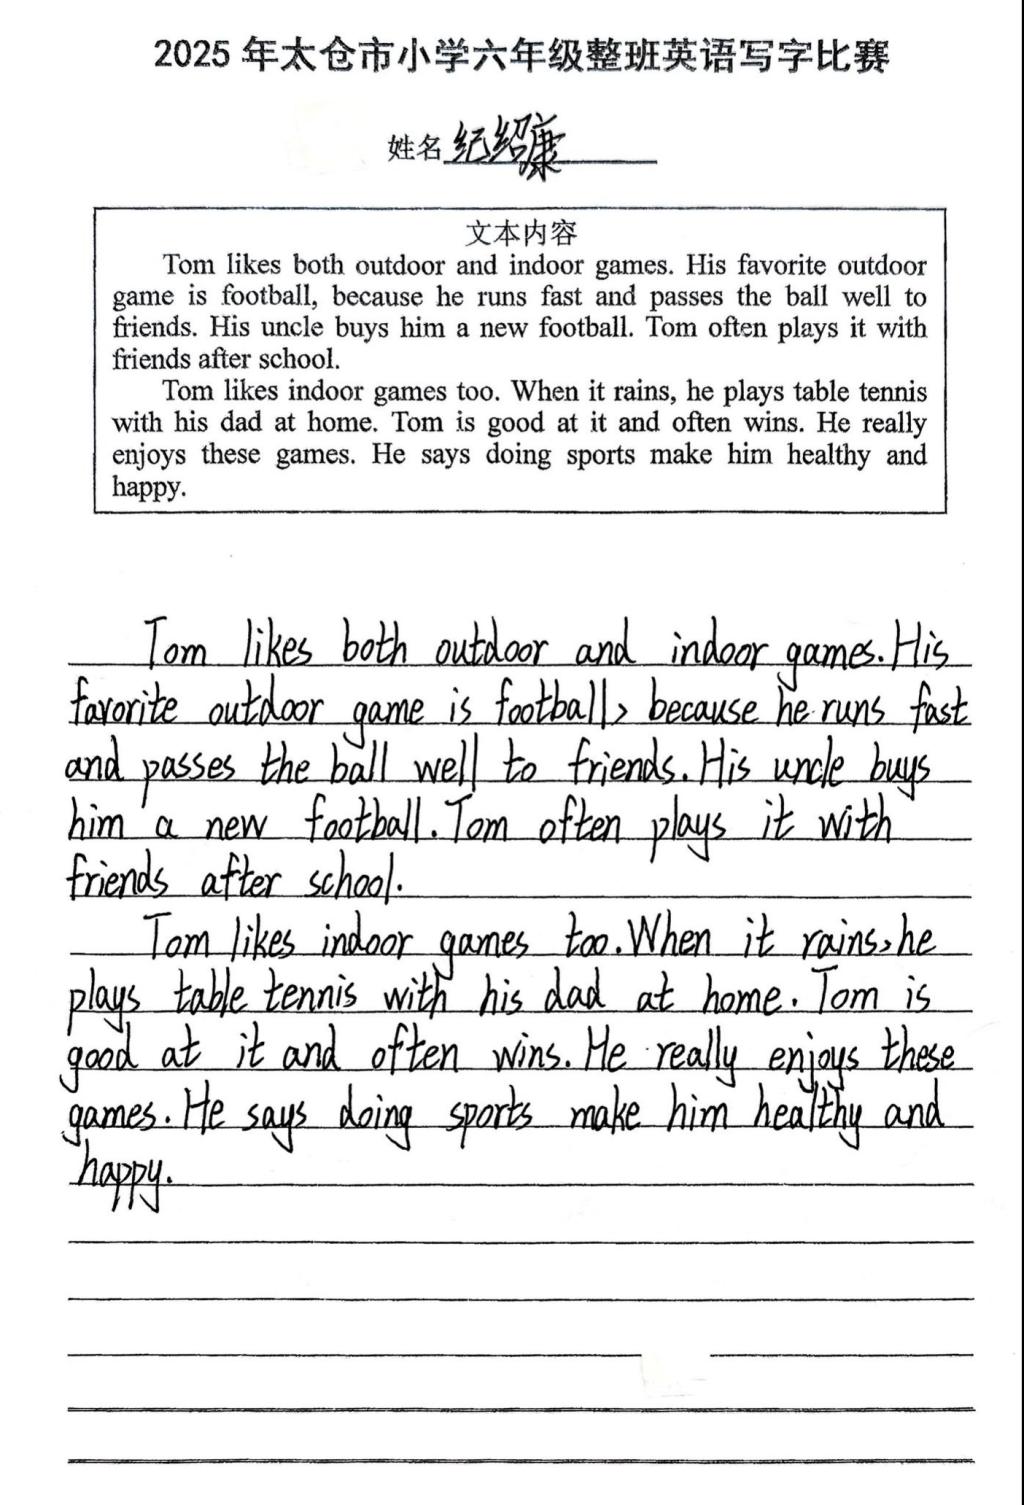 2025 年太仓市小学六年级整班英语写字比赛
姓名 纪绍康
文本内容
Tom likes both outdoor and indoor games. His favorite outdoor
game is football, because he runs fast and passes the ball well to
friends. His uncle buys him a new football. Tom often plays it with
friends after school.
Tom likes indoor games too. When it rains, he plays table tennis
with his dad at home. Tom is good at it and often wins. He really
enjoys these games. He says doing sports make him healthy and
happy.
Tom likes both outdoor and indoor games. His
favorite outdoor game is football, because he runs fast
and passes the ball well to friends. His uncle buys
him a new football. Tom often plays it with
friends after school.
Tom likes indoor games too. When it rains, he
plays table tennis with his dad at home. Tom is
good at it and often wins. He really enjoys these
games. He says doing sports make him healthy and
happy.